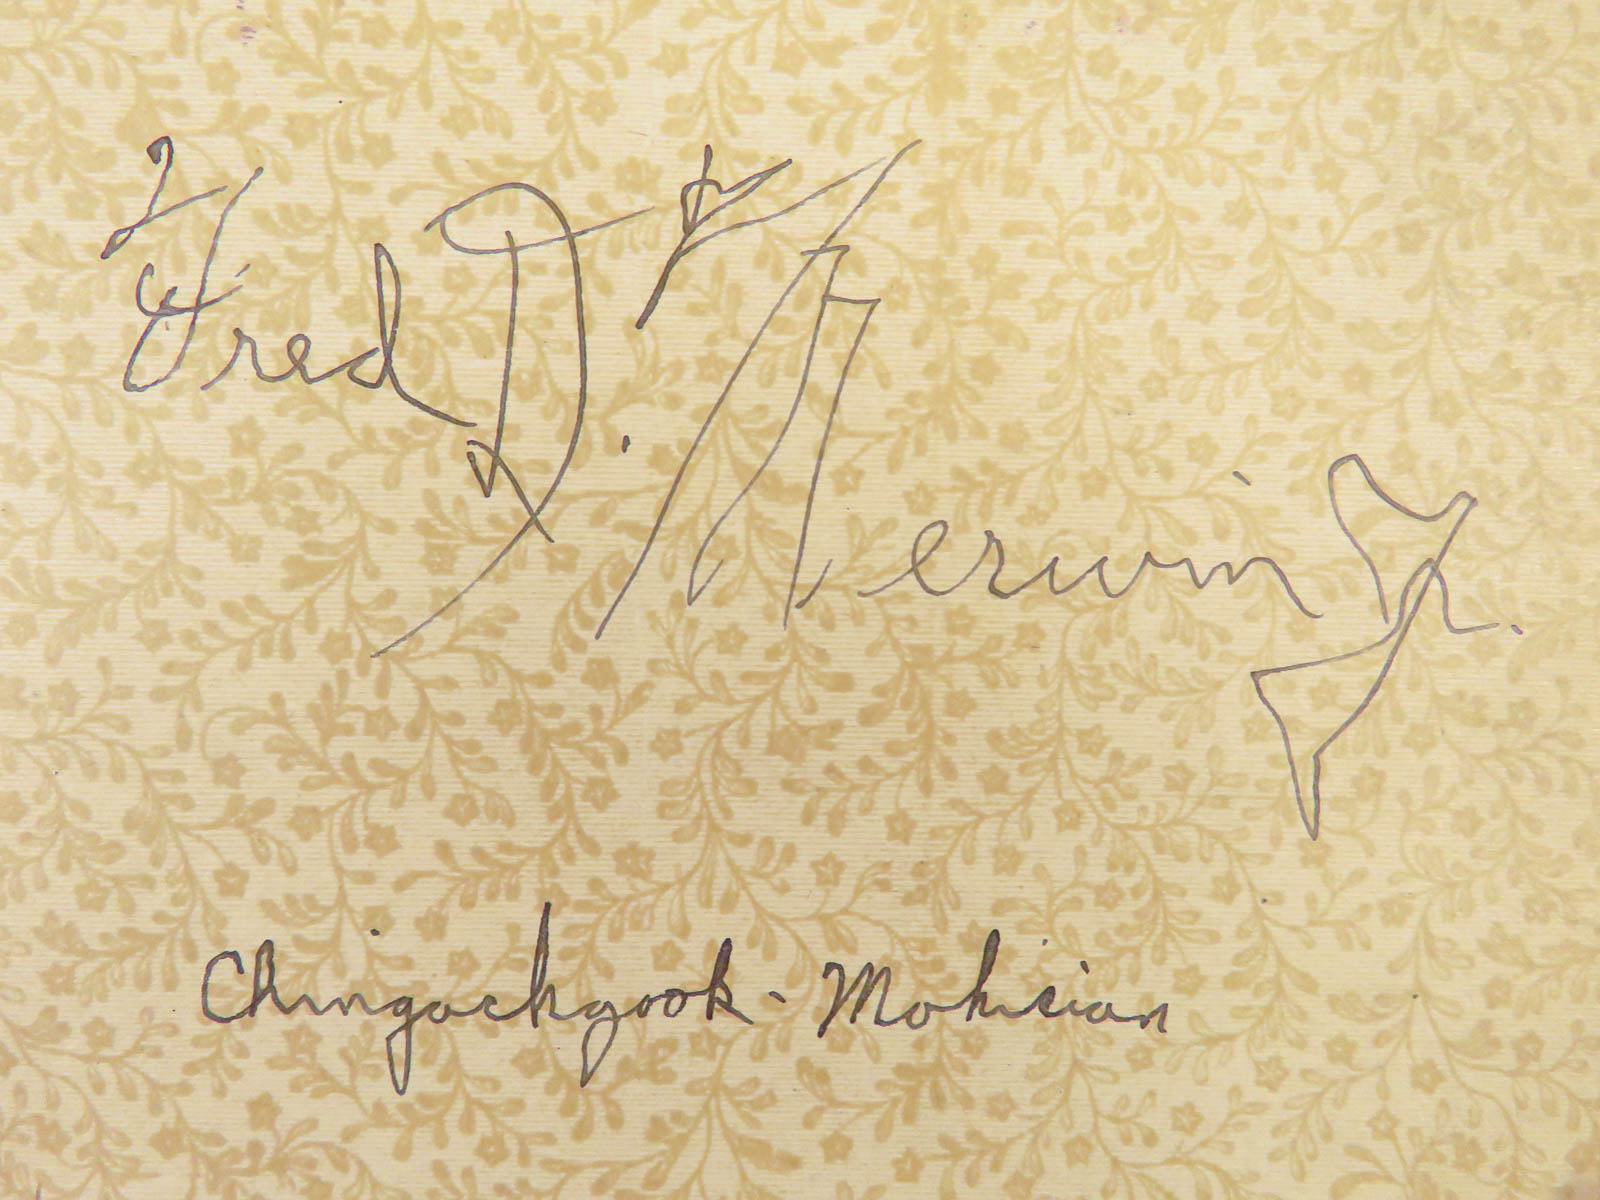 Fred D. Merwin Jr.
Chingachgook - Mohician